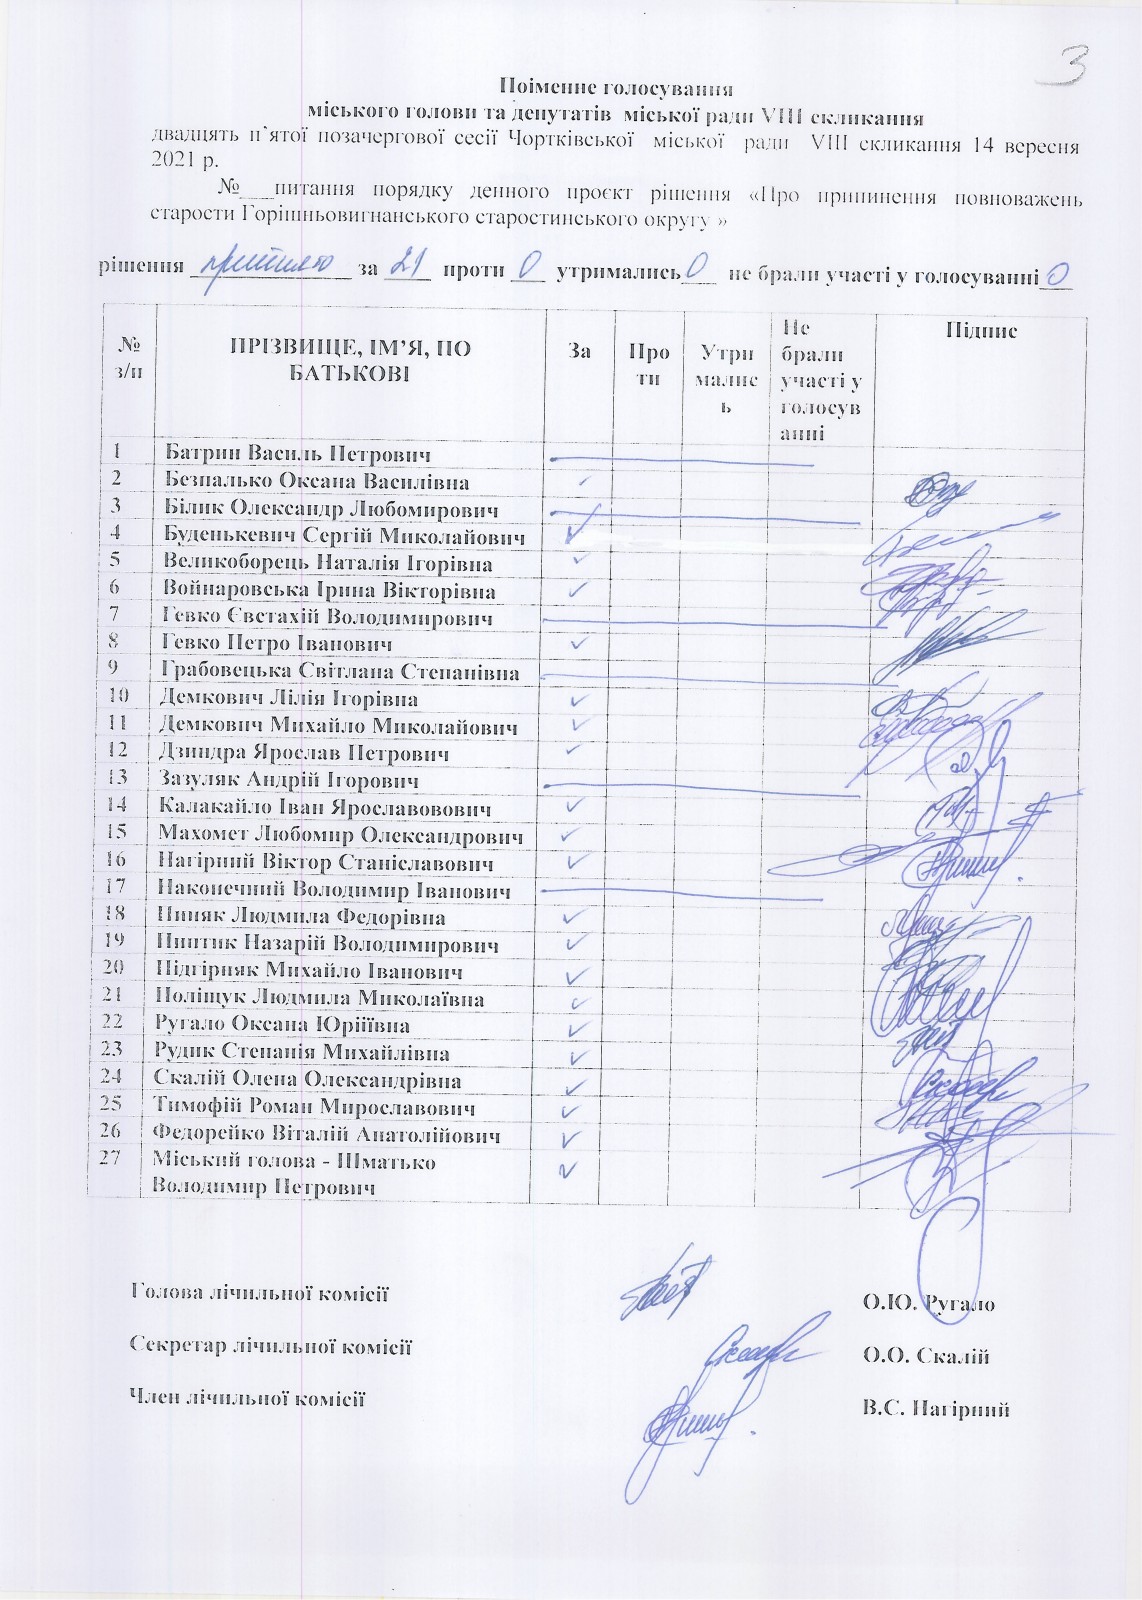 3
Поіменне голосування
міського голови та депутатів міської ради VIII скликання
двадцять п’ятої позачергової сесії Чортківської міської ради VIII скликання 14 вересня
2021 р.
№___питання порядку денного проєкт рішення «Про припинення повноважень
старости Горішньовигнанського старостинського округу »
рішення прийнято за 21 проти 0 утримались 0 не брали участі у голосуванні 0
№ з/п ПРІЗВИЩЕ, ІМ’Я, ПО БАТЬКОВІ За Проти Утрималисъ Не брали участі у голосуванні Підпис
1 Батрин Василь Петрович
2 Безпалько Оксана Василівна
3 Білик Олександр Любомирович
4 Буденькевич Сергій Миколайович
5 Великоборець Наталія Ігорівна
6 Войнаровська Ірина Вікторівна
7 Гевко Євстахій Володимирович
8 Гевко Петро Іванович
9 Грабовецька Світлана Степанівна
10 Демкович Лілія Ігорівна
11 Демкович Михайло Миколайович
12 Дзиндра Ярослав Петрович
13 Зазуляк Андрій Ігорович
14 Калакайло Іван Ярославовович
15 Махомет Любомир Олександрович
16 Нагірний Віктор Станіславович
17 Наконечний Володимир Іванович
18 Пиняк Людмила Федорівна
19 Пинтик Назарій Володимирович
20 Підгірняк Михайло Іванович
21 Поліщук Людмила Миколаївна
22 Ругало Оксана Юріїївна
23 Рудик Степанія Михайлівна
24 Скалій Олена Олександрівна
25 Тимофій Роман Мирославович
26 Федорейко Віталій Анатолійович
27 Міський голова - Шматько
Володимир Петрович
Голова лічильної комісії О.Ю. Ругало
Секретар лічильної комісії О.О. Скалій
Член лічильної комісії В.С. Нагірний